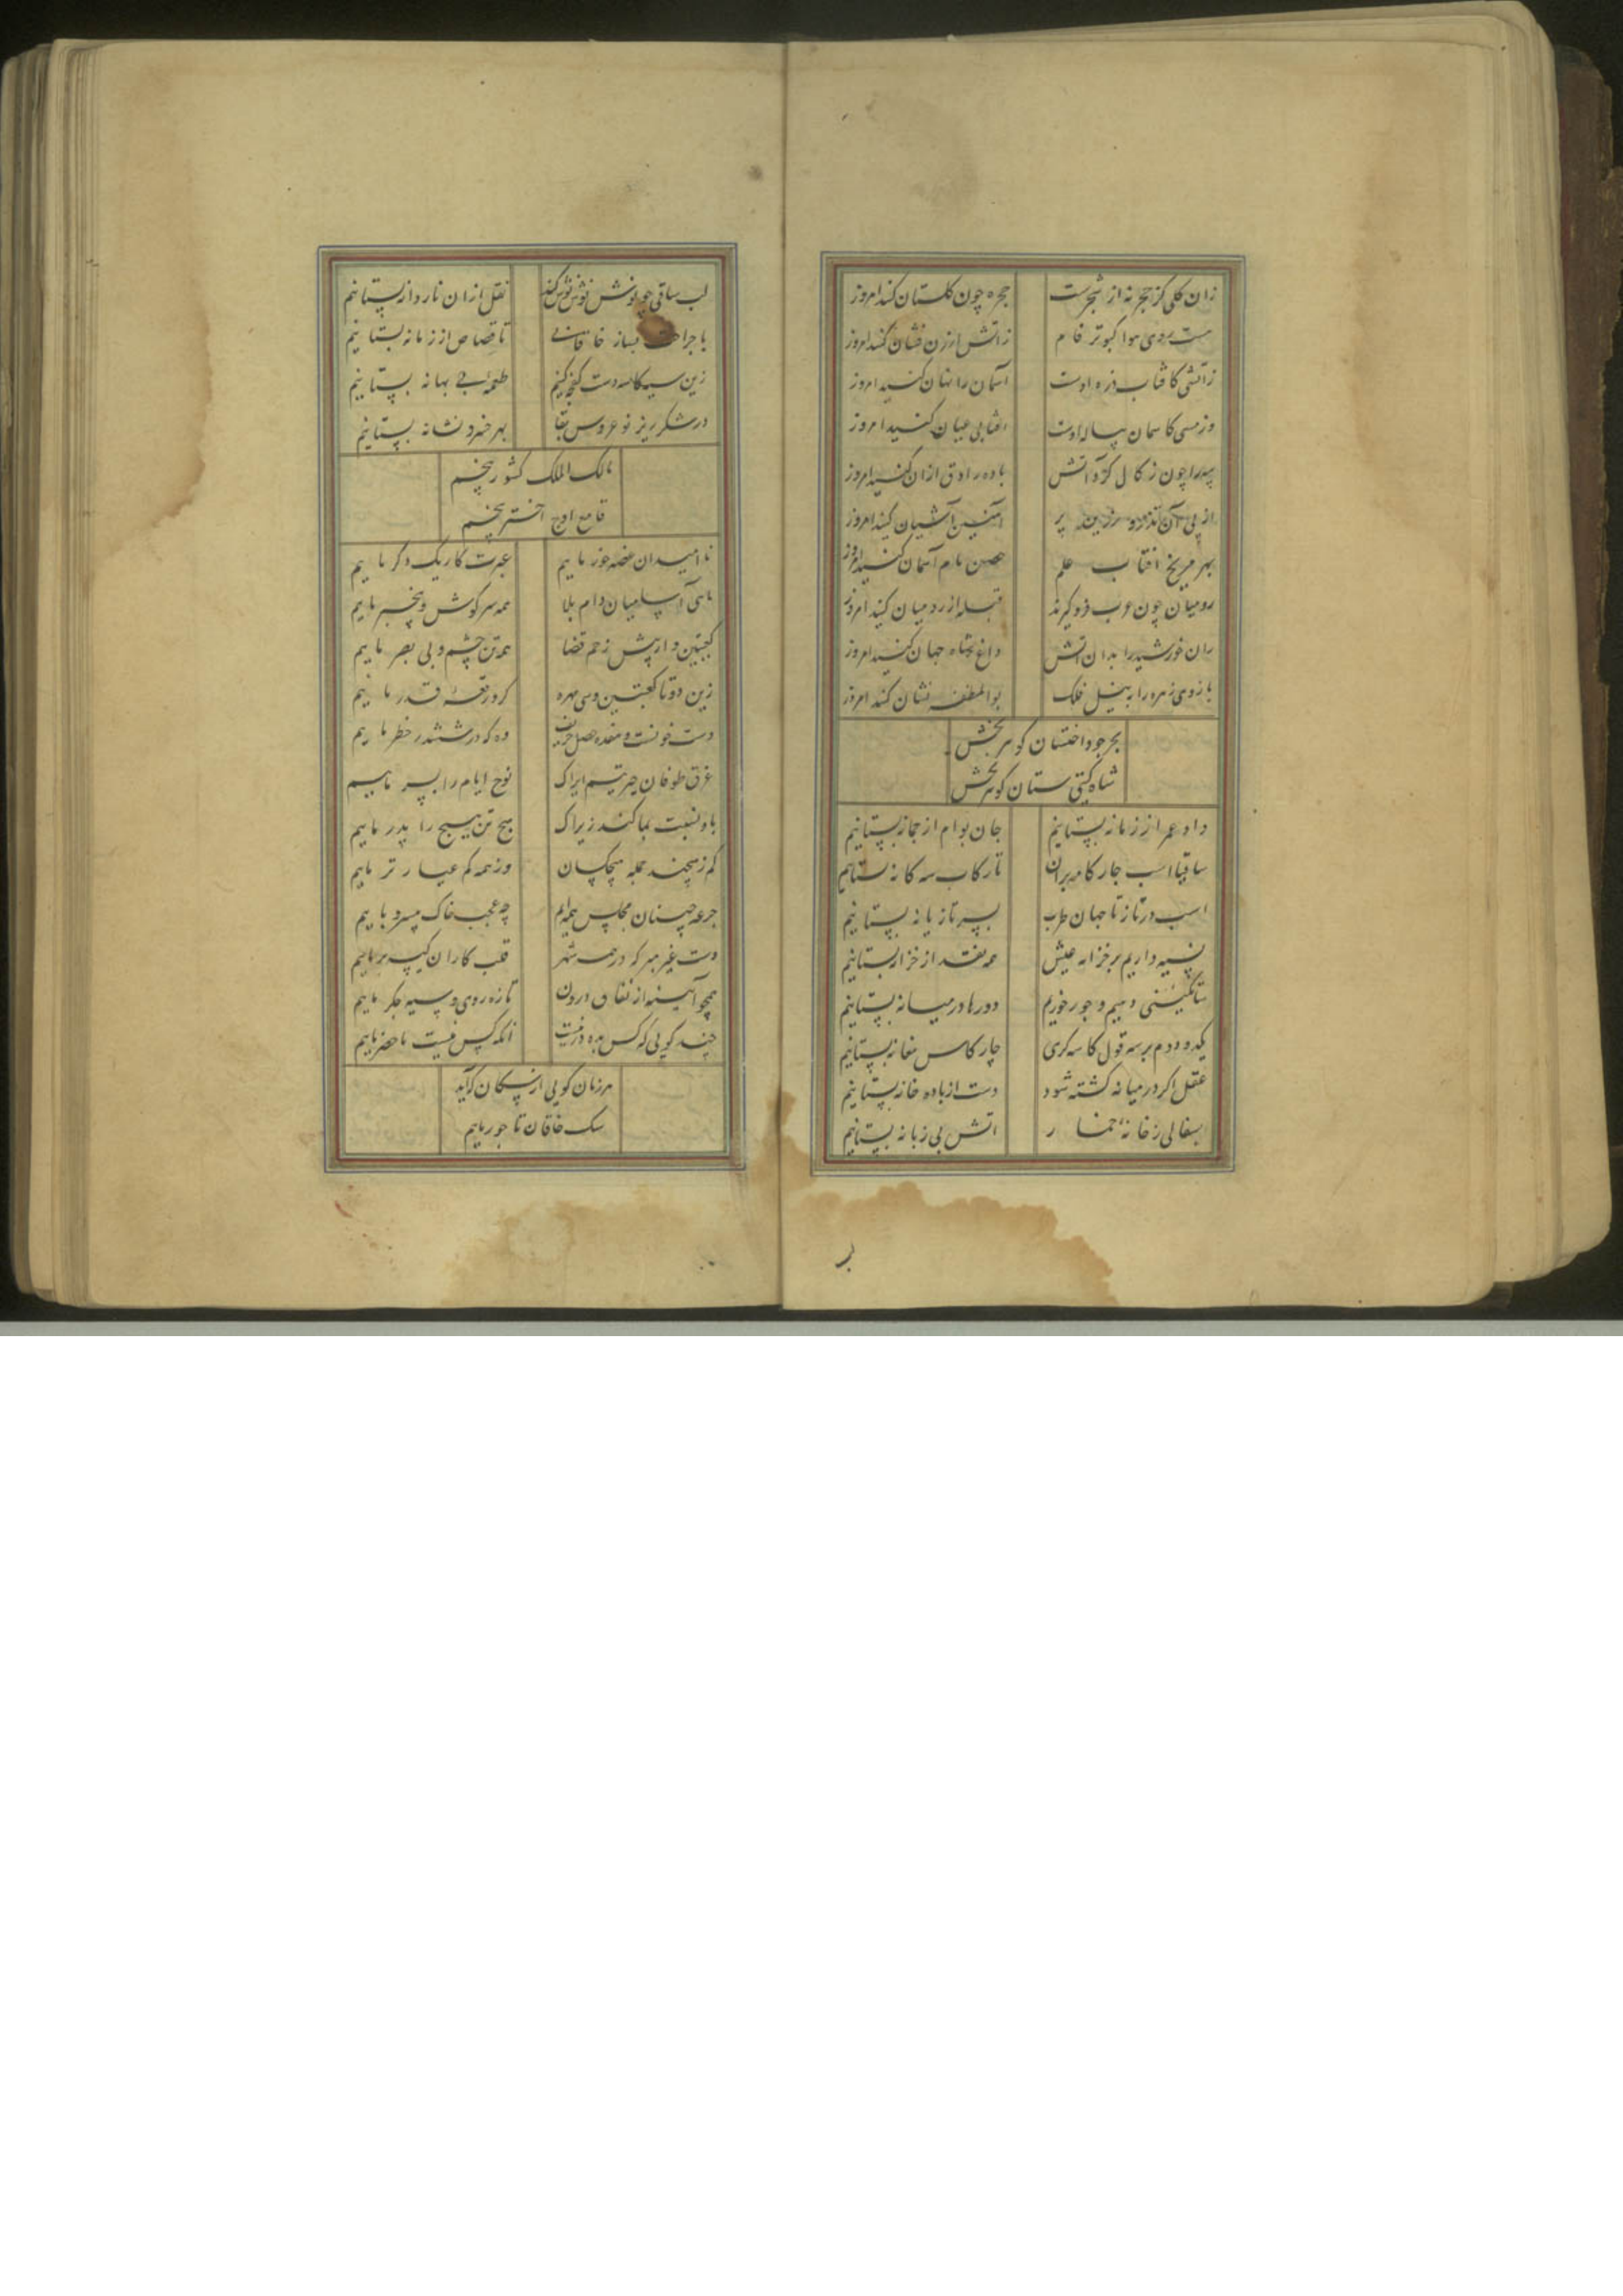 زان کلی کز حجر نه از شجرست حجره چون کلستان کنید امروز
هست روی هوا کبوتر فام زاتش ارزن فشان کنید امروز
زاتشی کافتاب ذره اوست آسمان را نهان کنید امروز
وز میی کاسمان پیاله اوست افتابی عیان کنید امروز
چون ز کال کره آتش باده راوق ازان کنید امروز
از پی آن تذرو زرین پر آهنین آشیان کنید امروز
بهر مریخ افتاب علم حصن بام آسمان کنید امروز
رومیان چون عرب فرو کیرند قبله از رومیان کنید امروز
ران خورشید را بدان اتش داغ شاه جهان کنید امروز
بازوی زهره را به نیل فلک بوالمظفر نشان کنید امروز
بحر جود اخستان کوهر بخش
شاه کیتی ستان کوهر بخش
داد عمر از زمانه بستانیم جان بوام از چمانه بستانیم
ساقیا اسب چار کامه بران تا رکاب سه کانه بستانیم
اسب درتاز تا جهان طرب بسر تازیانه بستانیم
نسیه داریم بر خزانه عیش همه نقد از خزانه بستانیم
ساتکینی دهیم و جور خوریم دورها در میانه بستانیم
یکدو دم بر سه قول کاسه کری چار کاس مغانه بستانیم
عقل اکر در میانه کشته شود دست از باده خانه بستانیم
بسفالی ز خانه خمار اتش بی زبانه بستانیم
لب ساقی چو نوش نوش کند نقل ازان ناردانه بستانیم
با جراحت بساز خاقانی تا قصاص از زمانه بستانیم
زین سیه کاسه دست کفچه کنیم طعمه بی بهانه بستانیم
در شکر ریز نو عروس بقا بهر خسرو نشانه بستانیم
مالک الملک کشور پنجم
قامع اوج اختر پنجم
نا امیدان غصه خور ماییم عبرت کار یک دکر ماییم
ماهی آسا میان دام بلا همه سر کوش و بی خبر ماییم
کعبتین وار پیش زخم قضا همه تن چشم و بی بصر ماییم
زین دوتا کعبتین و سی مهره کرو رقعه قدر ماییم
دست خونست و هفده خصل حریف وه که در ششدر خطر ماییم
غرق طوفان حیرتیم ایراک نوح ایام را پسر ماییم
باد نسبت بما کند زیراک هیچ تن هیچ را پدر ماییم
کم زهیچند جمله هیچکسان وز همه کم عیارتر ماییم
جرعه چینان مجلس همه ایم چه عجب خاک پی سپر ماییم
دست غیری مبر که در همه شهر قلب کاران کیسه بر ماییم
همچو آیینه از نفاق درون تازه روی و سیه جکر ماییم
چند کویی که کس بده در نیست انکه کس نیست ماحضر ماییم
هر زمان کویی از سکان که آید
سک خاقان تاجور ماییم